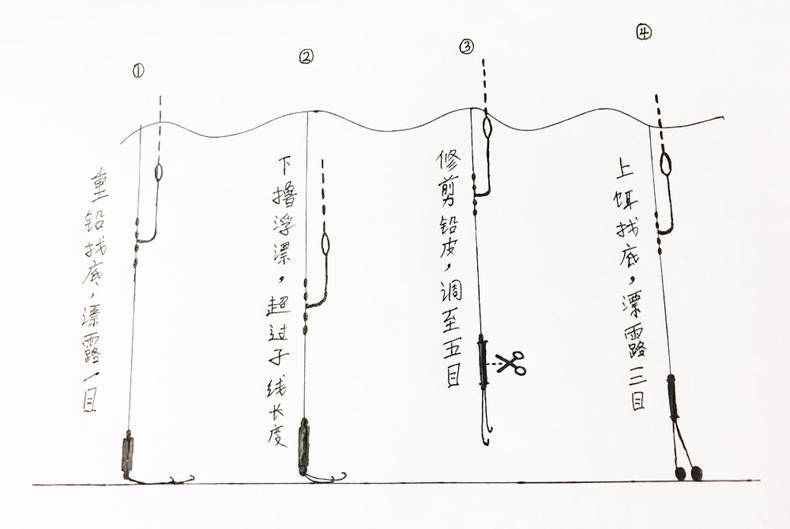 ①
重铅找底，漂露一目
②
下撸浮漂，超过子线长度
③
修剪铅皮，调至五目
④
上饵找底，漂露三目